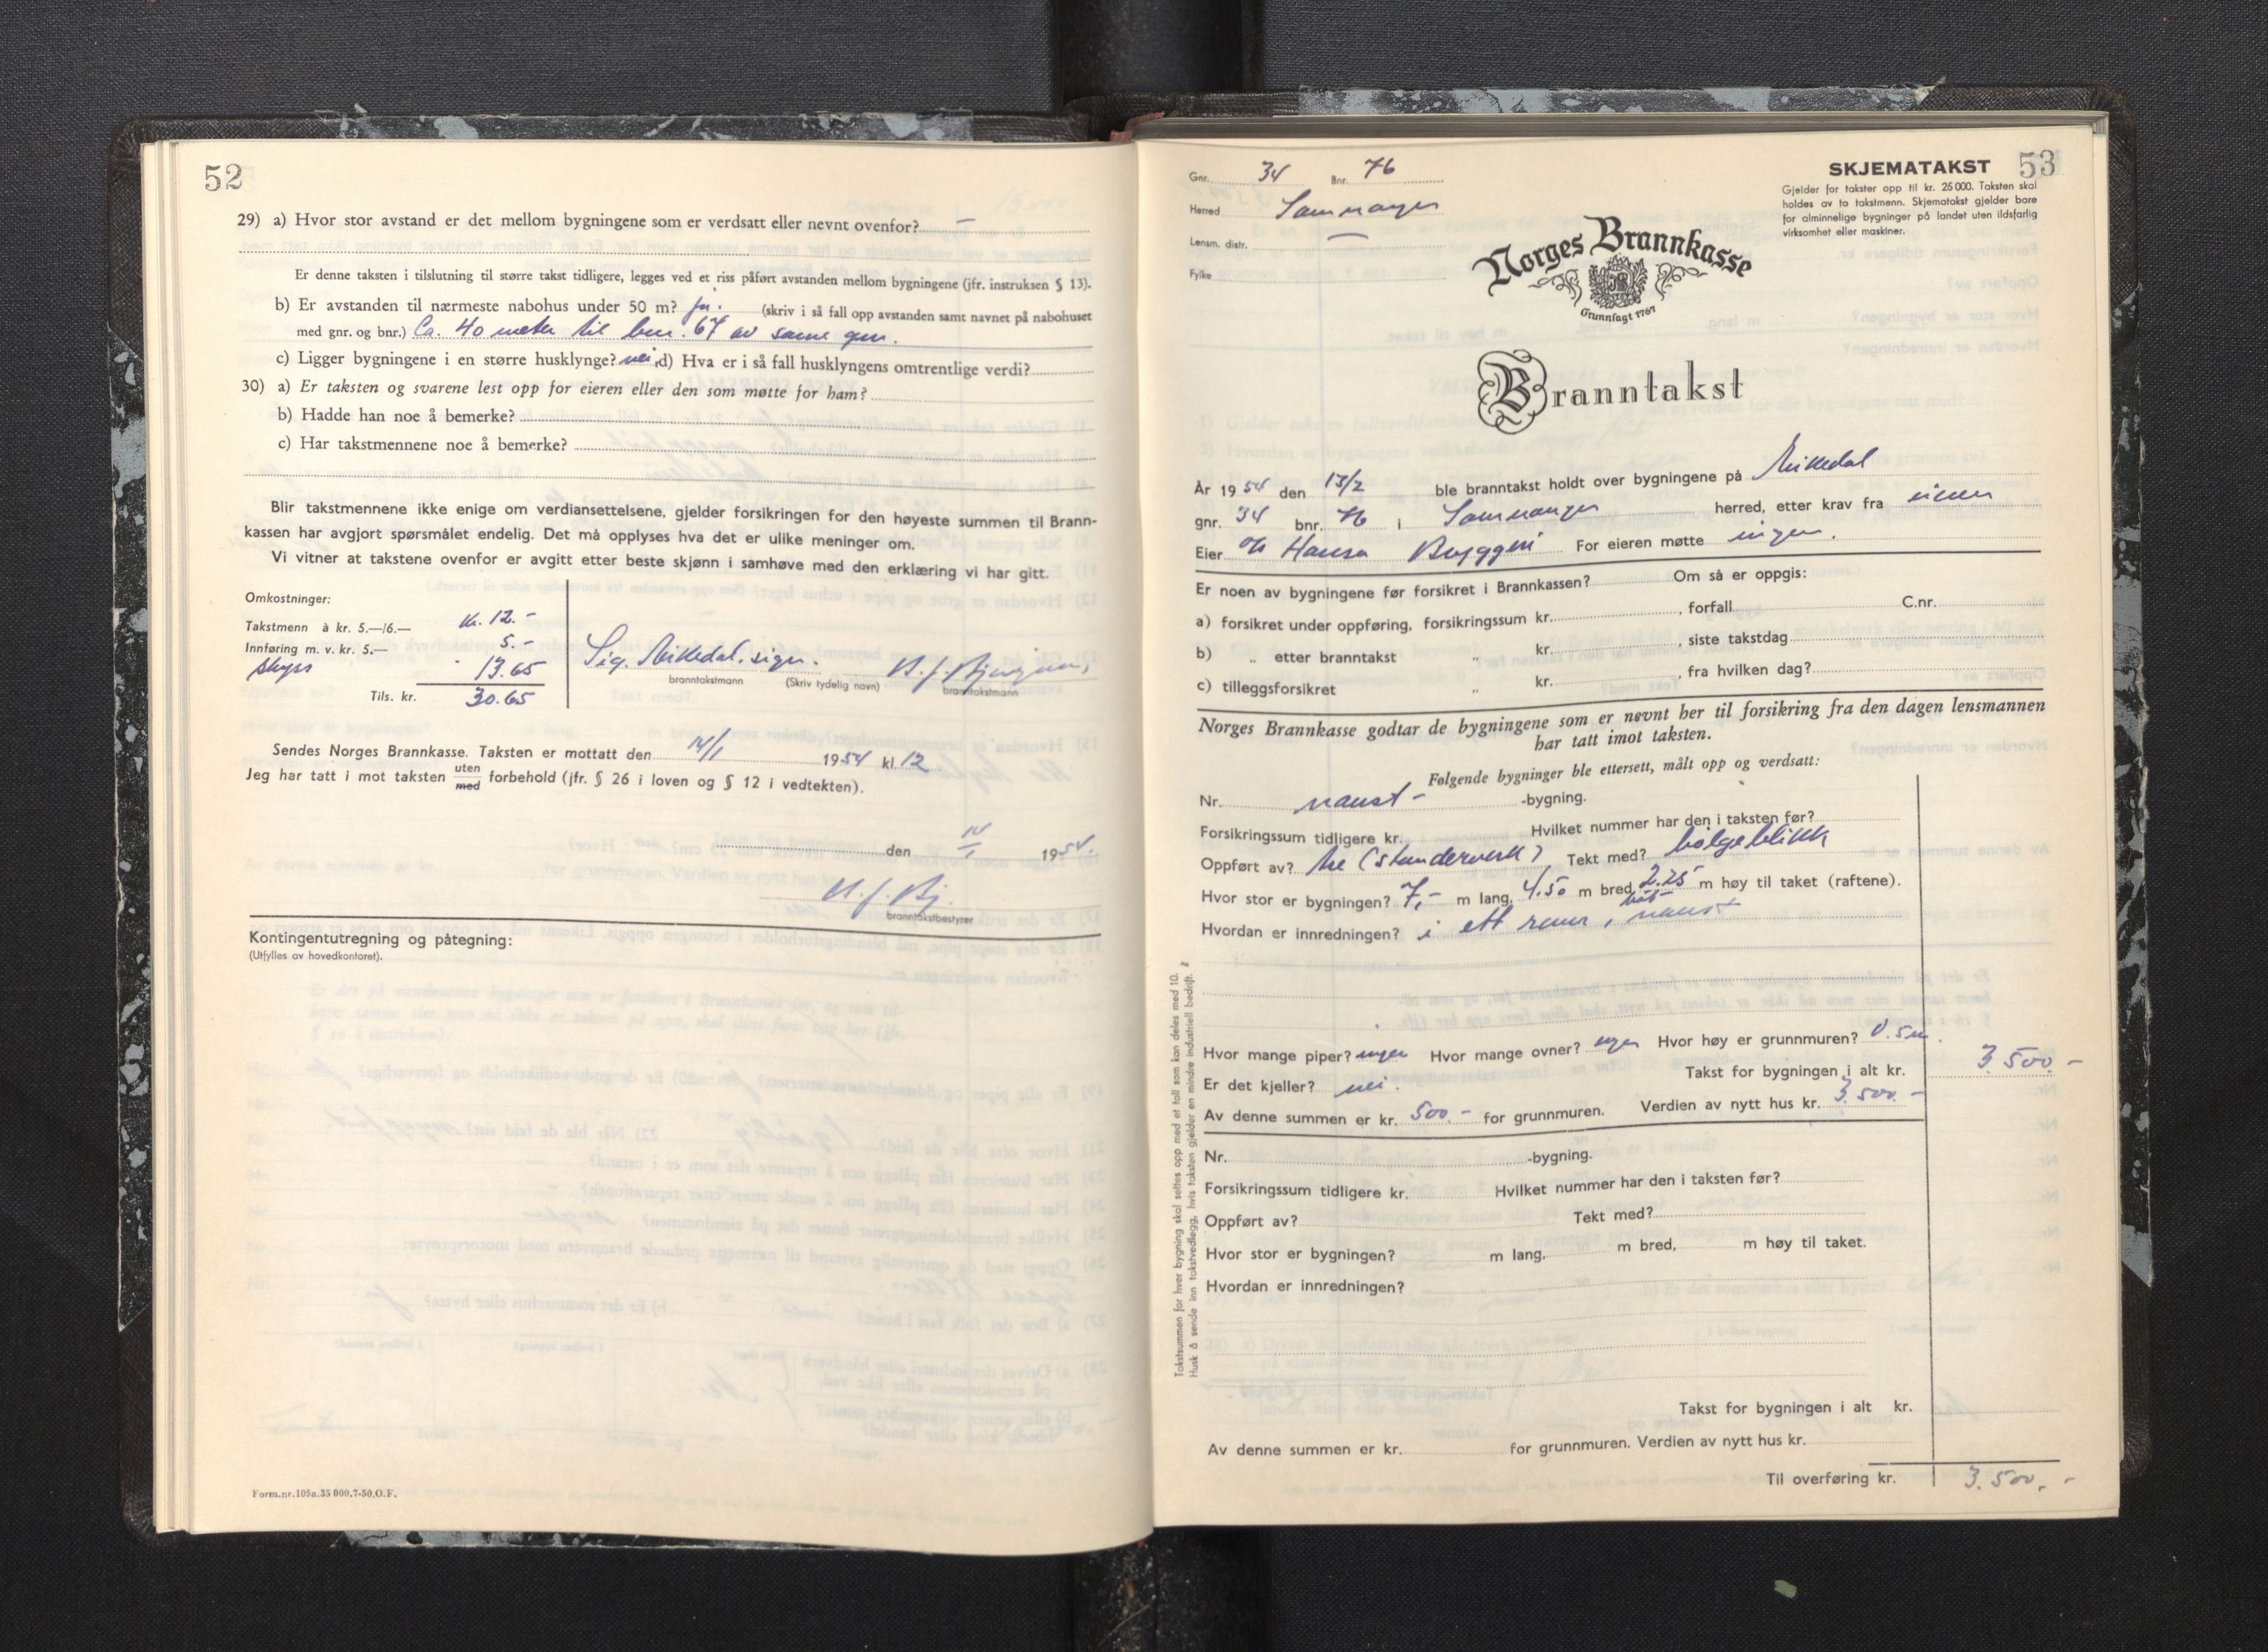 52
29) a) Hvor stor avstand er det mellom bygningene som er verdsatt eller nevnt ovenfor? —
Er denne taksten i tilslutning til større takst tidligere, legges ved et riss påført avstanden mellom bygningene (jfr. instruksen § 13).
b) Er avstanden til nærmeste nabohus under 50 m? ja. (skriv i så fall opp avstanden samt navnet på nabohuset
med gnr. og bnr.) Ca. 40 meter til bnr. 67 av same gnr.
c) Ligger bygningene i en større husklynge? nei, d) Hva er i så fall husklyngens omtrentlige verdi?
30) a) Er taksten og svarene lest opp for eieren eller den som møtte for ham?
b) Hadde han noe å bemerke?
c) Har takstmennene noe å bemerke?
Blir takstmennene ikke enige om verdiansettelsene, gjelder forsikringen for den høyeste summen til Brann-
kassen har avgjort spørsmålet endelig. Det må opplyses hva det er ulike meninger om.
Vi vitner at takstene ovenfor er avgitt etter beste skjønn i samhøve med den erklæring vi har gitt.
Omkostninger:
Takstmenn à kr. 5.—/6.— kr. 12.-
Innføring m. v. kr. 5.— 5.-
skyss - 13.65
Tils. kr. 30.65
Sig. sign.
branntakstmann (Skriv tydelig navn) branntakstmann
Sendes Norges Brannkasse. Taksten er mottatt den 14/1 1954 kl. 12
Jeg har tatt i mot taksten uten med forbehold (jfr. § 26 i loven og § 12 i vedtekten).
den 14/1 1954.
H. J. Bj.
branntakstbestyrer
Kontingentutregning og påtegning:
(Utfylles av hovedkontoret).
Form.nr.105a.35 000.7-50.O.F.
53
SKJEMATAKST
Gjelder for takster opp til kr. 25 000. Taksten skal
holdes av to takstmenn. Skjematakst gjelder bare
for alminnelige bygninger på landet uten ildsfarlig
virksomhet eller maskiner.
Gnr. 34 Bnr. 76
Herred Samnanger
Lensm. distr. —
Fylke
Norges Brannkasse
Grunnlagt 1767
Branntakst
År 1954 den 13/2 ble branntakst holdt over bygningene på
gnr. 34 bnr. 76 i Samnanger herred, etter krav fra eieren
Eier Hansa Bryggeri For eieren møtte ingen.
Er noen av bygningene før forsikret i Brannkassen? Om så er oppgis:
a) forsikret under oppføring, forsikringssum kr. , forfall C.nr.
b) „ etter branntakst „ kr. , siste takstdag
c) tilleggsforsikret „ kr. , fra hvilken dag?
Norges Brannkasse godtar de bygningene som er nevnt her til forsikring fra den dagen lensmannen
har tatt imot taksten.
Følgende bygninger ble ettersett, målt opp og verdsatt:
Nr. naust- -bygning.
Forsikringssum tidligere kr. Hvilket nummer har den i taksten før?
Oppført av? tre (standerverk) Tekt med? bølgeblikk
Hvor stor er bygningen? 7,- m lang, 4.50 m bred 2.25 m høy til taket (raftene).
Hvordan er innredningen? i ett rum, båt naust
Hvor mange piper? ingen Hvor mange ovner? ingen Hvor høy er grunnmuren? 0.5 m.
Er det kjeller? nei. Takst for bygningen i alt kr. 3.500.-
Av denne summen er kr. 500.- for grunnmuren. Verdien av nytt hus kr. 3.500.-
Nr. -bygning.
Forsikringssum tidligere kr. Hvilket nummer har den i taksten før?
Oppført av? Tekt med?
Hvor stor er bygningen? m lang, m bred, m høy til taket.
Hvordan er innredningen?
Takst for bygningen i alt kr.
Av denne summen er kr. for grunnmuren. Verdien av nytt hus kr.
Til overføring kr. 3.500.-
Takstsummen for hver bygning skal settes opp med et tall som kan deles med 10.
Husk å sende inn takstvedlegg, hvis taksten gjelder en mindre industriell bedrift.